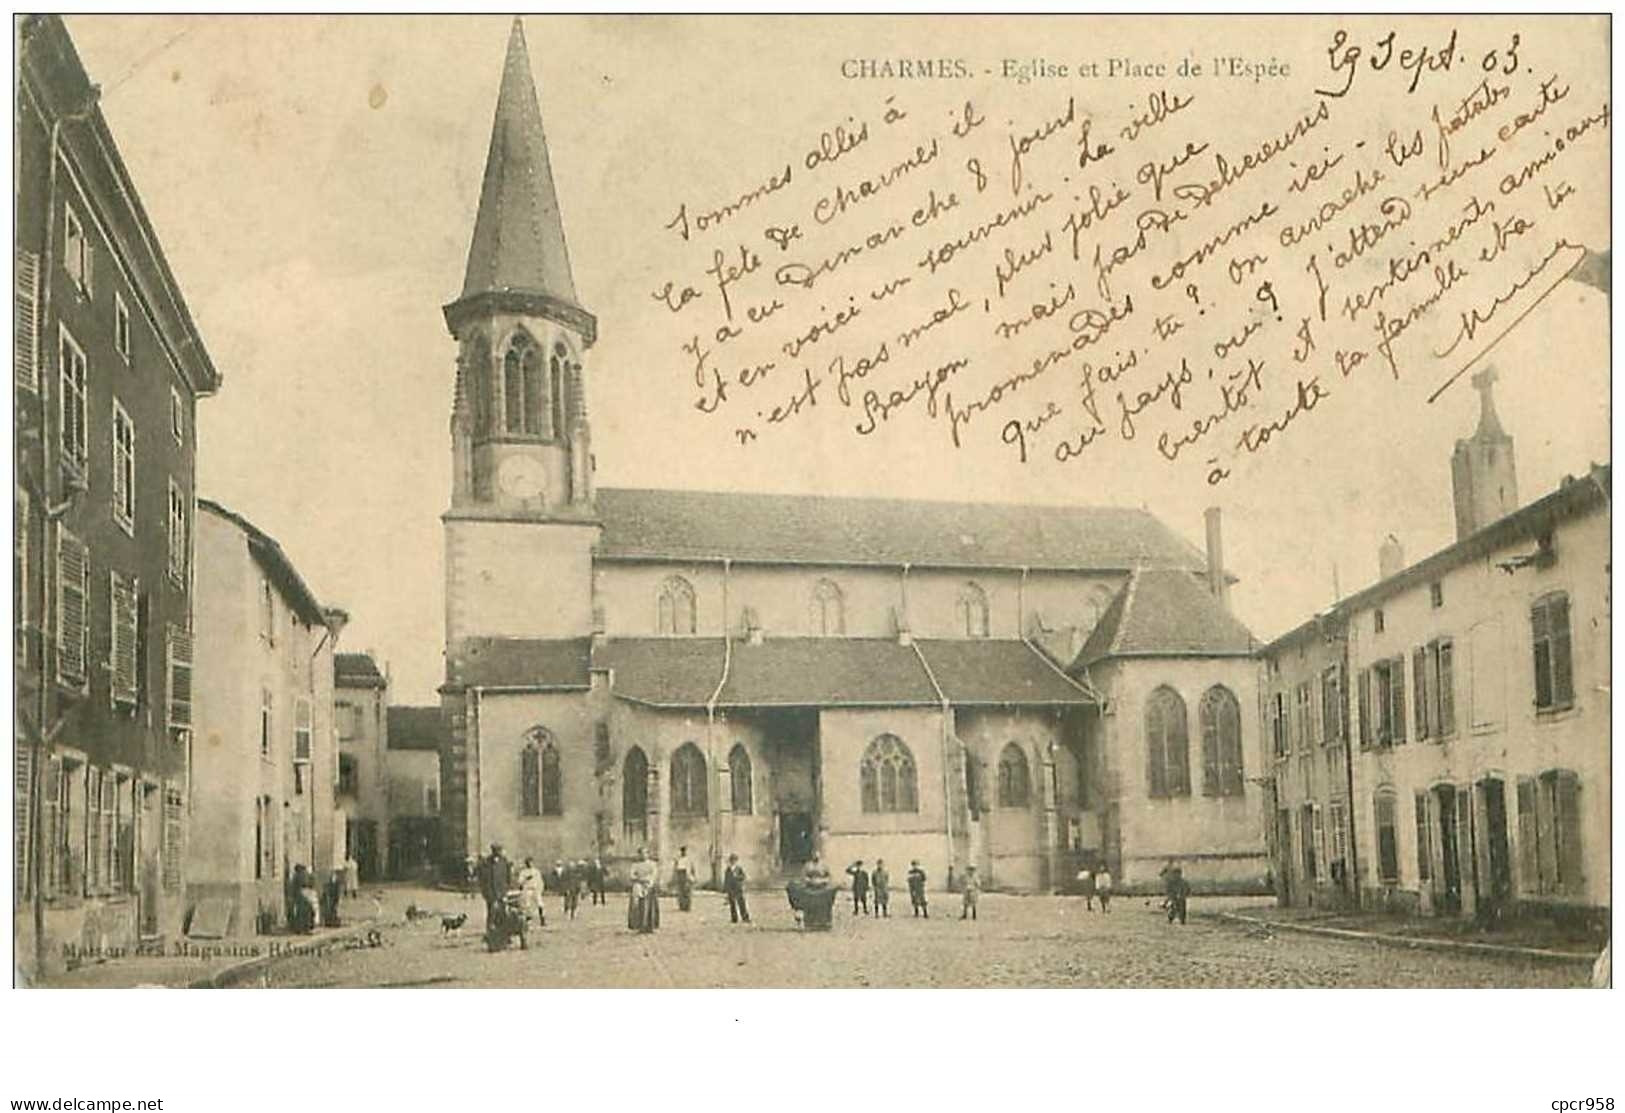 CHARMES. - Eglise et Place de l'Espée
29 Sept. 03.
Sommes allés à
la fête de Charmes il
y a eu Dimanche 8 jours
et en voici un souvenir. La ville
n'est pas mal, plus jolie que
Bayon mais pas de délicieuses
promenades comme ici -
que fais-tu? on arrache les patates
au pays, oui? J'attend une carte
bientôt et sentiments amicaux
à toute la famille et à toi
Maison des Magasins Réunis
delcampe.net
cpcr958